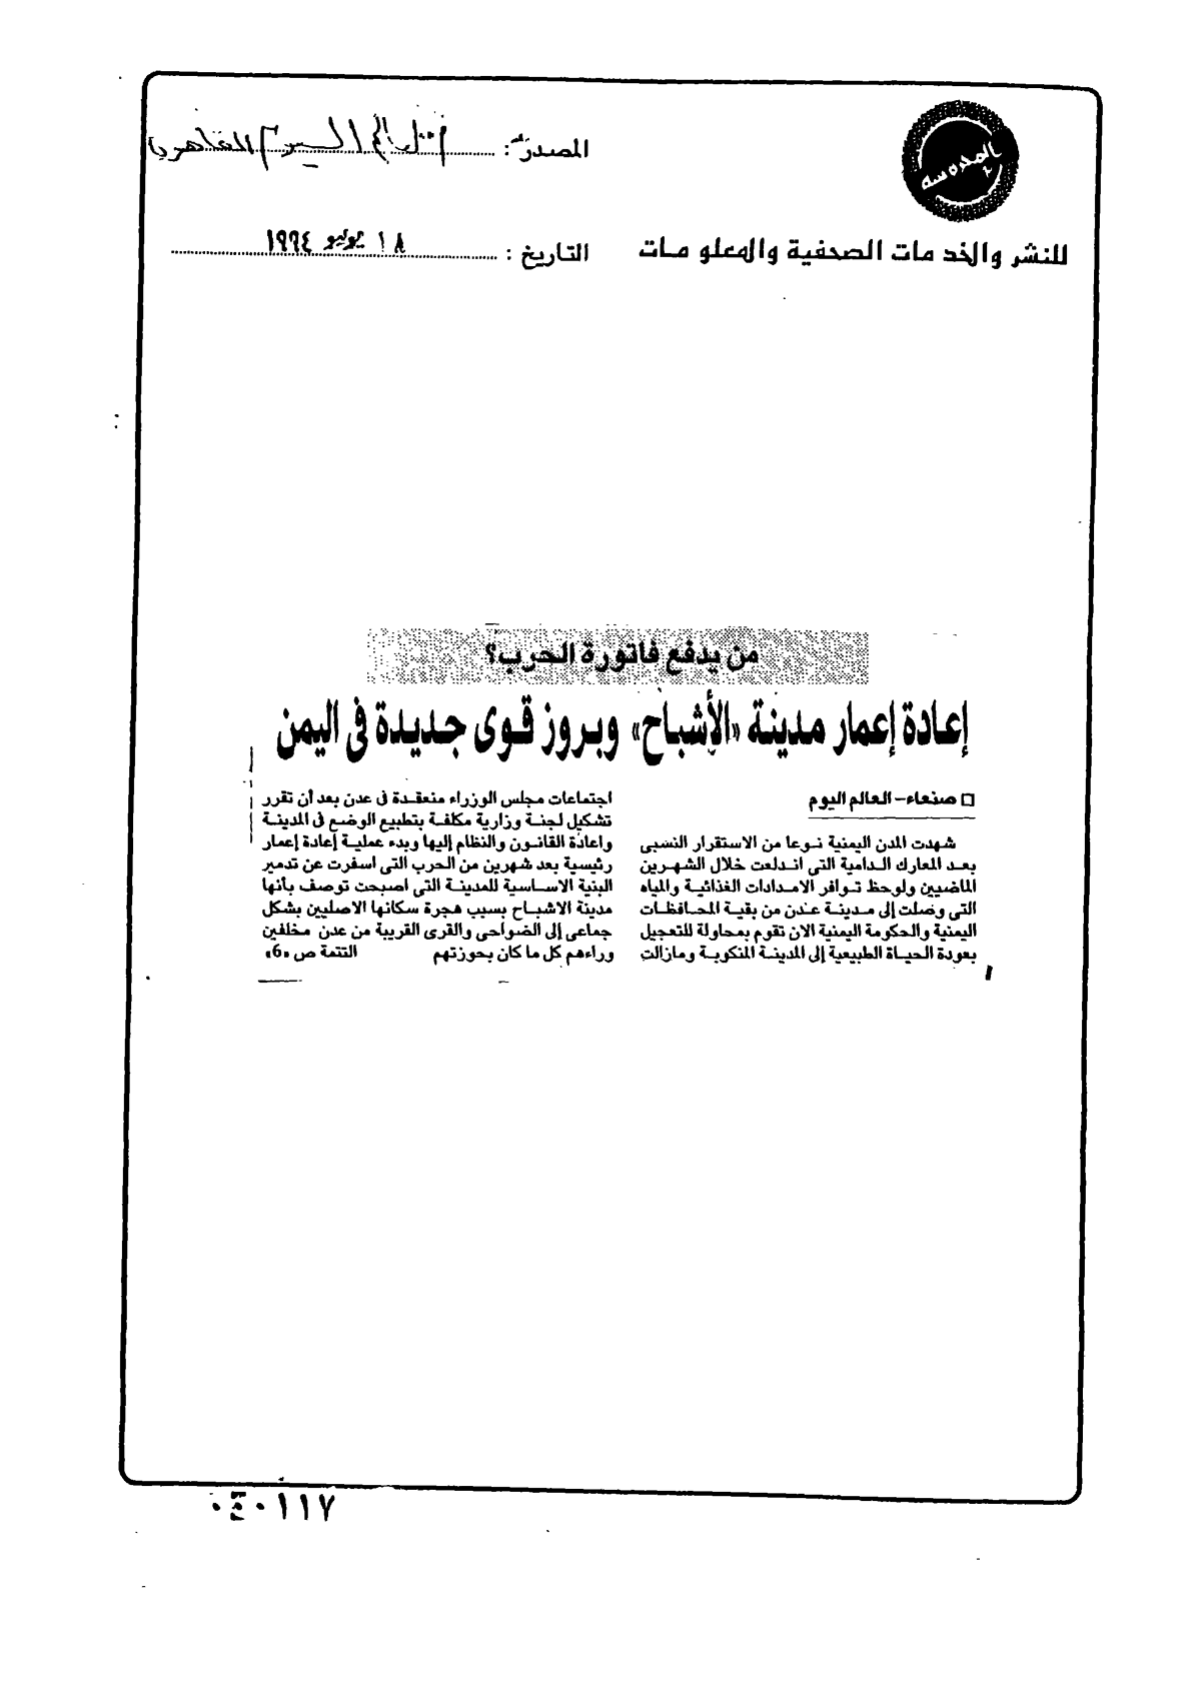 المحروسة
للنشر والخدمات الصحفية والمعلومات
المصدر: العالم اليوم القاهرية
التاريخ: ١٨ يوليو ١٩٩٤
من يدفع فاتورة الحرب؟
إعادة إعمار مدينة «الأشباح» وبروز قوى جديدة فى اليمن
□ صنعاء - العالم اليوم
شهدت المدن اليمنية نوعا من الاستقرار النسبى
بعد المعارك الدامية التى اندلعت خلال الشهرين
الماضيين ولوحظ توافر الامدادات الغذائية والمياه
التى وصلت إلى مدينة عدن من بقية المحافظات
اليمنية والحكومة اليمنية الان تقوم بمحاولة للتعجيل
بعودة الحياة الطبيعية إلى المدينة المنكوبة ومازالت
اجتماعات مجلس الوزراء منعقدة فى عدن بعد أن تقرر
تشكيل لجنة وزارية مكلفة بتطبيع الوضع فى المدينة
واعادة القانون والنظام إليها وبدء عملية إعادة إعمار
رئيسية بعد شهرين من الحرب التى اسفرت عن تدمير
البنية الاساسية للمدينة التى اصبحت توصف بأنها
مدينة الاشباح بسبب هجرة سكانها الاصليين بشكل
جماعى إلى الضواحى والقرى القريبة من عدن مخلفين
وراءهم كل ما كان بحوزتهم التتمة ص «6»